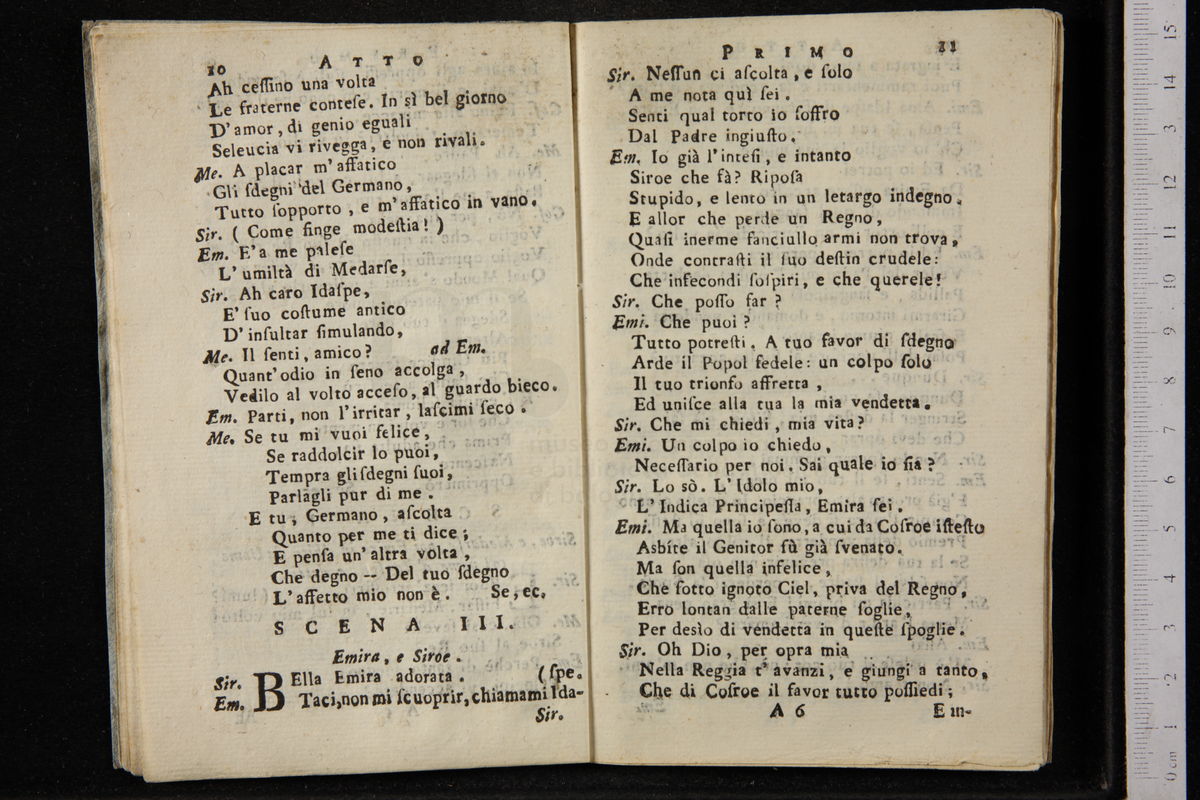 10 ATTO
Ah ceſſino una volta
Le fraterne conteſe. In sì bel giorno
D'amor, di genio eguali
Seleucia vi rivegga, e non rivali.
Me. A placar m'affatico
Gli ſdegni del Germano,
Tutto ſopporto, e m'affatico in vano.
Sir. ( Come finge modeſtia! )
Em. E'a me paleſe
L'umiltà di Medarſe,
Sir. Ah caro Idaſpe,
E' ſuo coſtume antico
D'inſultar ſimulando,
Me. Il ſenti, amico? ad Em.
Quant'odio in ſeno accolga,
Vedilo al volto acceſo, al guardo bieco.
Em. Parti, non l'irritar, laſcimi ſeco.
Me. Se tu mi vuoi felice,
Se raddolcir lo puoi,
Tempra gli ſdegni ſuoi,
Parlagli pur di me.
E tu, Germano, aſcolta
Quanto per me ti dice;
E penſa un'altra volta,
Che degno -- Del tuo ſdegno
L'affetto mio non è. Se, ec.
SCENA III.
Emira, e Siroe.
Sir. BElla Emira adorata. (ſpe.
Em. Taci, non mi ſcuoprir, chiamami Ida-
Sir.
PRIMO 11
Sir. Neſſun ci aſcolta, e ſolo
A me nota quì ſei.
Senti qual torto io ſoffro
Dal Padre ingiuſto.
Em. Io già l'inteſi, e intanto
Siroe che fà? Ripoſa
Stupido, e lento in un letargo indegno.
E allor che perde un Regno,
Quaſi inerme fanciullo armi non trova,
Onde contraſti il ſuo deſtin crudele:
Che infecondi ſoſpiri, e che querele!
Sir. Che poſſo far?
Emi. Che puoi?
Tutto potreſti. A tuo favor di ſdegno
Arde il Popol fedele: un colpo ſolo
Il tuo trionfo affretta,
Ed uniſce alla tua la mia vendetta.
Sir. Che mi chiedi, mia vita?
Emi. Un colpo io chiedo,
Neceſſario per noi. Sai quale io ſia?
Sir. Lo sò. L'Idolo mio,
L'Indica Principeſſa, Emira ſei.
Emi. Ma quella io ſono, a cui da Coſroe iſteſto
Asbite il Genitor fù già ſvenato.
Ma ſon quella infelice,
Che ſotto ignoto Ciel, priva del Regno,
Erro lontan dalle paterne ſoglie,
Per desìo di vendetta in queſte ſpoglie.
Sir. Oh Dio, per opra mia
Nella Reggia t'avanzi, e giungi a tanto,
Che di Coſroe il favor tutto poſſiedi;
A 6 Em-
15
14
13
12
11
10
9
8
7
6
5
4
3
2
1
0 cm